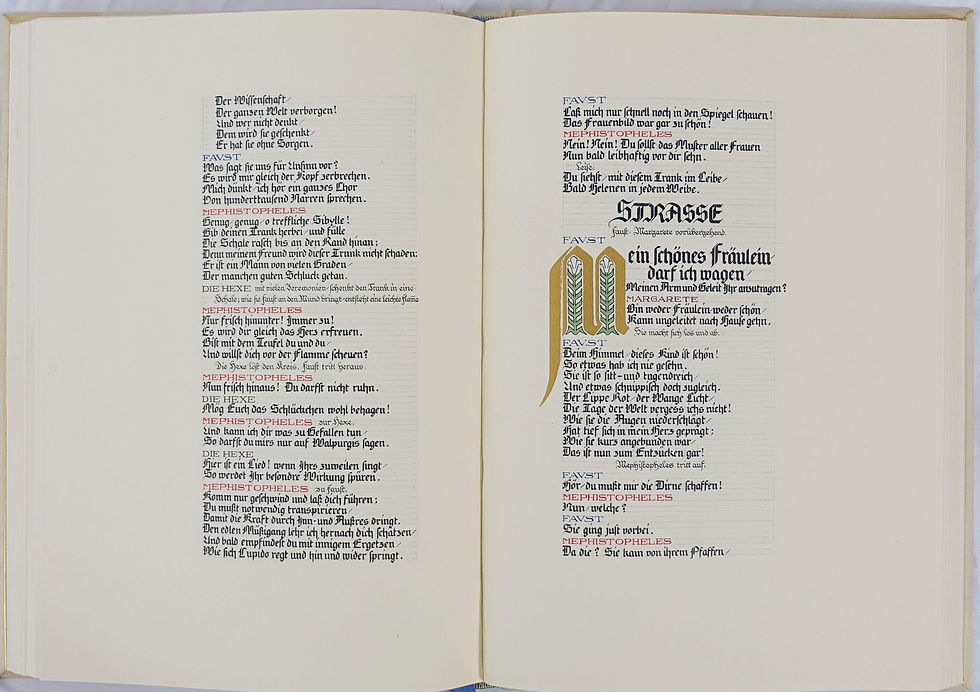 Der Wissenschaft/
Der ganzen Welt verborgen!
Und wer nicht denkt/
Dem wird sie geschenkt/
Er hat sie ohne Sorgen.
FAVST
Was sagt sie uns für Unsinn vor?
Es wird mir gleich der Kopf zerbrechen.
Mich dünkt/ich hör ein ganzes Chor
Von hunderttausend Narren sprechen.
MEPHISTOPHELES
Genug/genug/o treffliche Sibylle!
Gib deinen Trank herbei/und fülle
Die Schale rasch bis an den Rand hinan;
Denn meinem Freund wird dieser Trunk nicht schaden:
Er ist ein Mann von vielen Graden/
Der manchen guten Schluck getan.
DIE HEXE mit vielen Zeremonien/schenkt den Trank in eine
Schale; wie sie Faust an den Mund bringt/entsteht eine leichte Flamme
MEPHISTOPHELES
Nur frisch hinunter! Immer zu!
Es wird dir gleich das Herz erfreuen.
Bist mit dem Teufel du und du/
Und willst dich vor der Flamme scheuen?
Die Hexe löst den Kreis. Faust tritt heraus.
MEPHISTOPHELES
Nun frisch hinaus! Du darfst nicht ruhn.
DIE HEXE
Mög Euch das Schlückchen wohl behagen!
MEPHISTOPHELES zur Hexe.
Und kann ich dir was zu Gefallen tun/
So darfst du mirs nur auf Walpurgis sagen.
DIE HEXE
Hier ist ein Lied! wenn Ihrs zuweilen singt/
So werdet Ihr besondre Wirkung spüren.
MEPHISTOPHELES zu Faust.
Komm nur geschwind und laß dich führen;
Du mußt notwendig transpirieren/
Damit die Kraft durch Inn-und Äußres dringt.
Den edlen Müßigang lehr ich hernach dich schätzen/
Und bald empfindest du mit innigem Ergetzen/
Wie sich Cupido regt und hin und wider springt.
FAVST
Laß mich nur schnell noch in den Spiegel schauen!
Das Frauenbild war gar zu schön!
MEPHISTOPHELES
Nein! Nein! Du sollst das Muster aller Frauen
Nun bald leibhaftig vor dir sehn.
Leise.
Du siehst/mit diesem Trank im Leibe/
Bald Helenen in jedem Weibe.
STRASSE
Faust. Margarete vorübergehend.
FAVST
Mein schönes Fräulein/
darf ich wagen/
Meinen Arm und Geleit Ihr anzutragen?
MARGARETE
Bin weder Fräulein/weder schön/
Kann ungeleitet nach Hause gehn.
Sie macht sich los und ab.
FAVST
Beim Himmel/dieses Kind ist schön!
So etwas hab ich nie gesehn.
Sie ist so sitt-und tugendreich/
Und etwas schnippisch doch zugleich.
Der Lippe Rot/der Wange Licht/
Die Tage der Welt vergess ichs nicht!
Wie sie die Augen niederschlägt/
Hat tief sich in mein Herz geprägt;
Wie sie kurz angebunden war/
Das ist nun zum Entzücken gar!
Mephistopheles tritt auf.
FAVST
Hör/du mußt mir die Dirne schaffen!
MEPHISTOPHELES
Nun/welche?
FAVST
Sie ging just vorbei.
MEPHISTOPHELES
Da die? Sie kam von ihrem Pfaffen/